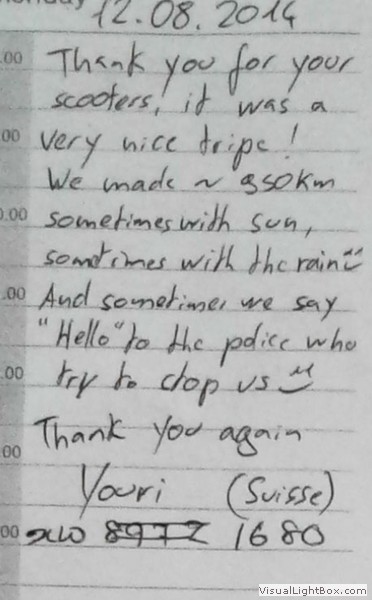 12.08.2014
.00 Thank you for your
scooters, it was a
00 very nice tripe!
We made ~ 950km
0.00 sometimes with sun,
sometimes with the rain
.00 And sometimes we say
"Hello" to the police who
.00 try to stop us
00 Thank you again
Youri (Suisse)
00 1680
VisualLightBox.com